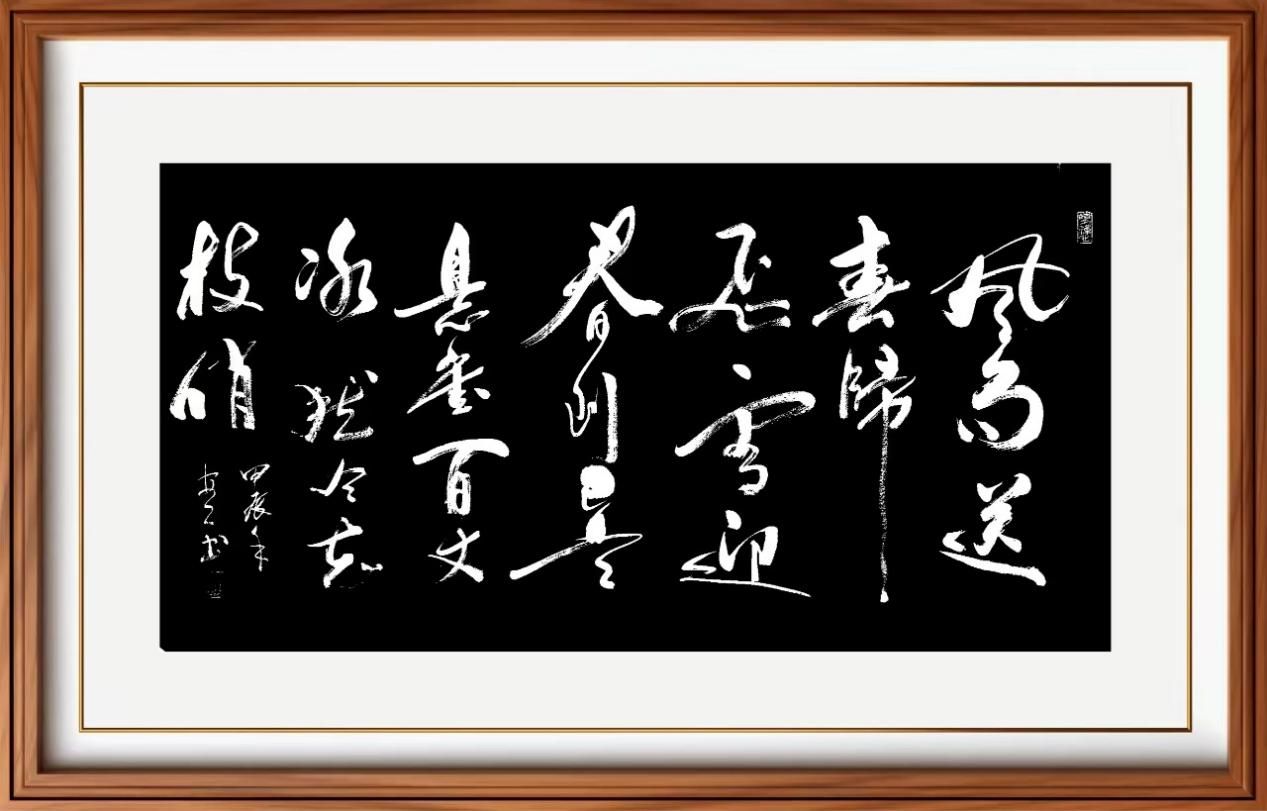 风雨送
春歸
飞雪迎
春到已是
悬崖百丈
冰犹有花
枝俏
甲辰年
书